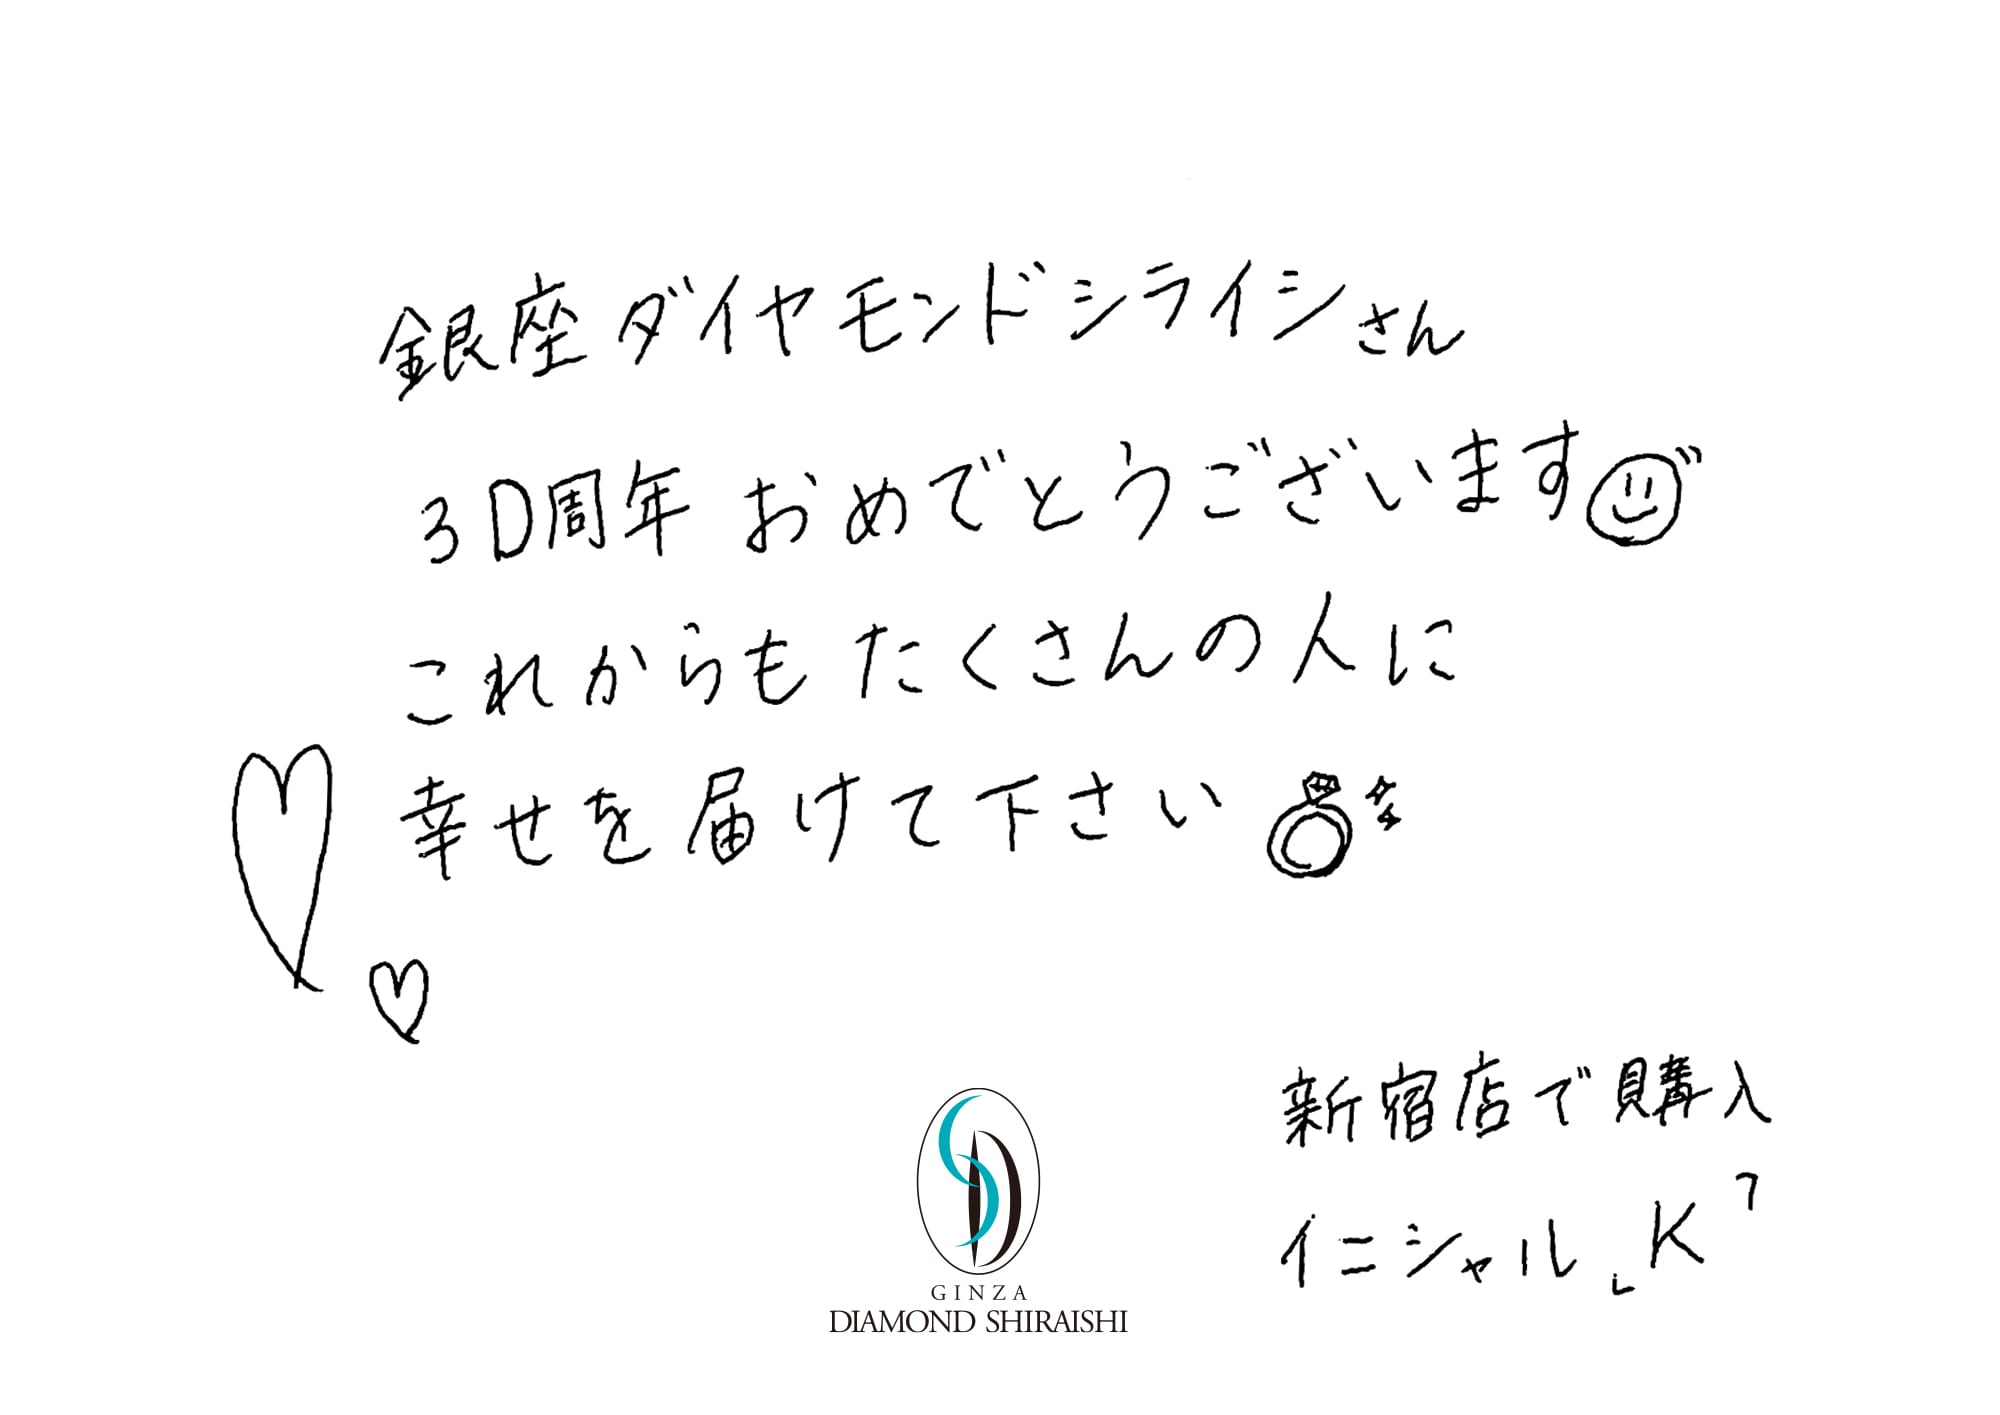 銀座ダイヤモンドシライシさん
30周年 おめでとうございます
これからも たくさんの人に
幸せを届けて下さい
新宿店で購入
イニシャル 」K「
GINZA
DIAMOND SHIRAISHI